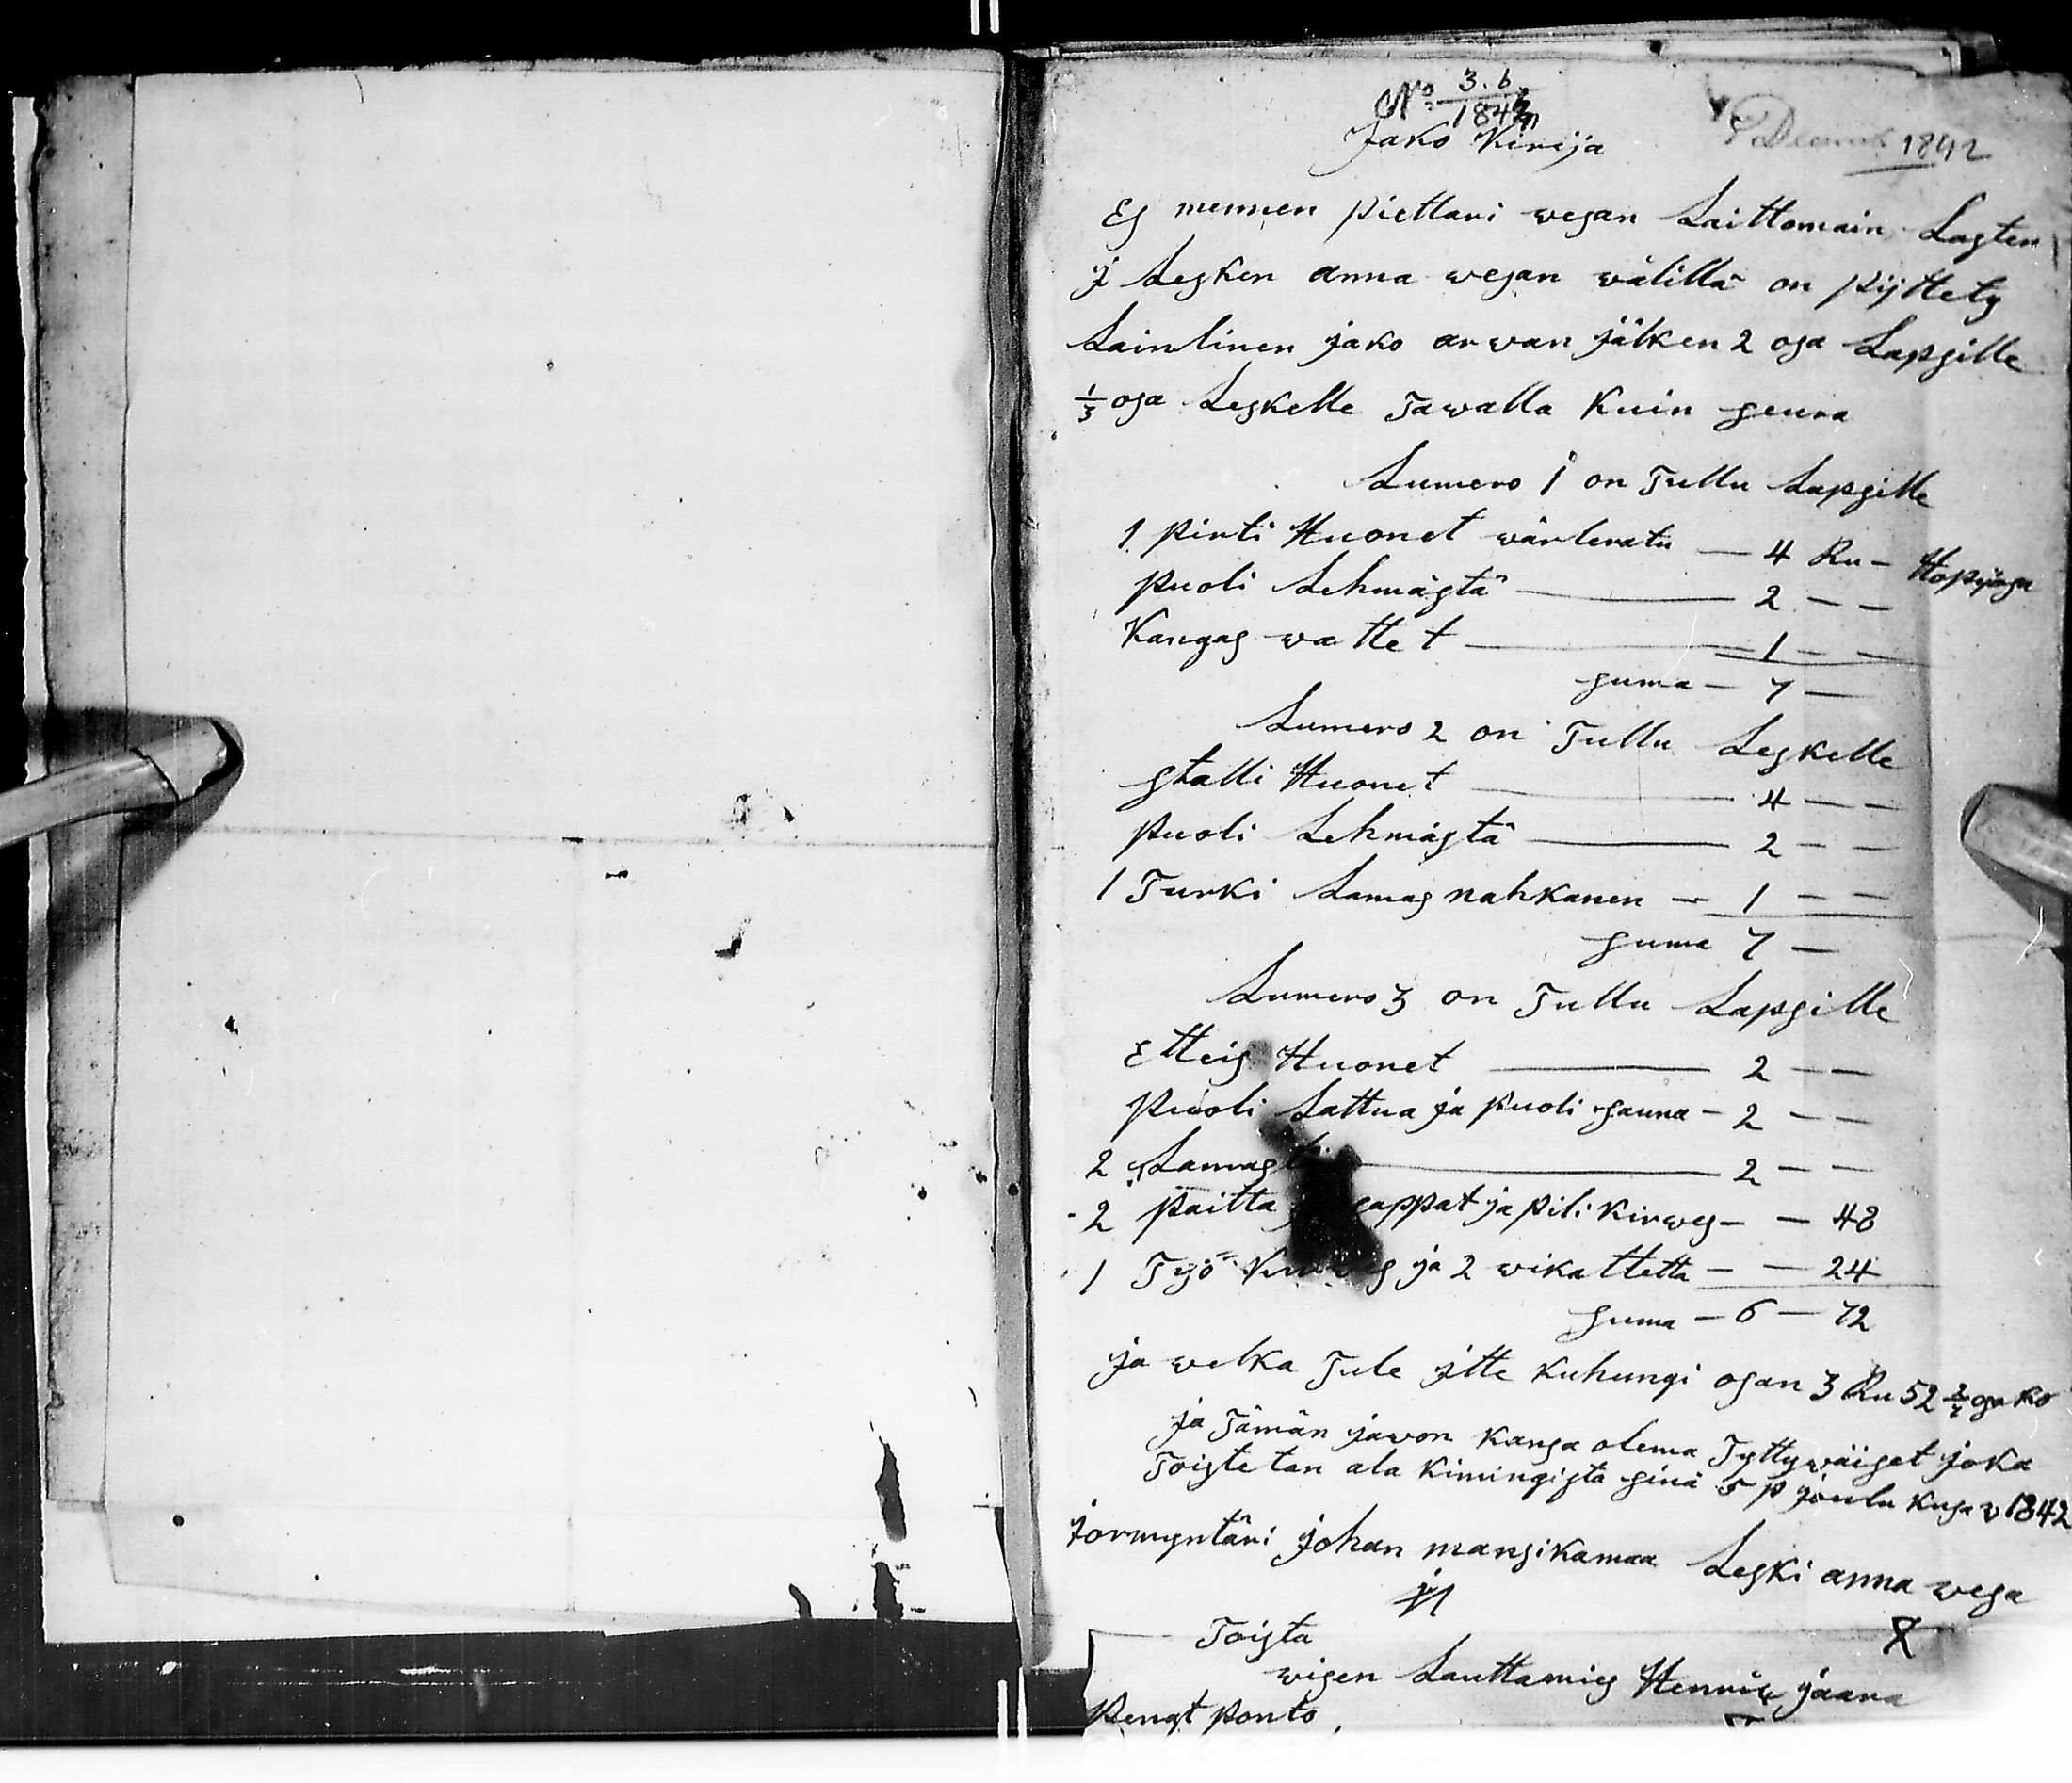 No 3.b
1842
Jako Kirija
Decemb 1842
Es mennen piettari wesan Laittomain Lasten
j Lesken anna wesan wälillä on pijttety
Lainlinen jako arwan jälken 2 osa Lapsille
1/3 osa Leskelle Tawalla Kuin seura
Lumero 1 on Tullu Lapsille
1 pirti Huonet wärleratu — 4 Ru — Hopijasa
puoli Lehmästä — 2 — —
Kangas wattet — 1 — —
suma — 7 —
Lumero 2 on Tullu Leskelle
stalli Huonet — 4 — —
puoli Lehmästä — 2 — —
1 Turki Lamas nahkanen — 1 — —
suma 7 —
Lumero 3 on Tullu Lapsille
Etteis Huonet — 2 — —
puoli Lattua ja puoli sauna — 2 — —
2 — 2 — —
2 paitta ja pili Kirwes — — 48
1 Työ ja 2 wikattetta — — 24
suma — 6 — 72
ja welka Tule jtte kuhungi osan 3 Ru 52 osa ko
ja Tämän jawon kansa olema Tyttywäiset joka
Toistetan ala Kimingista sinä 5 p joulu kusa v 1842
formyntäri johan mansikamaa Leski anna wesa
Toista
wisen Lauttamies Henrik jaara
pengt ponto